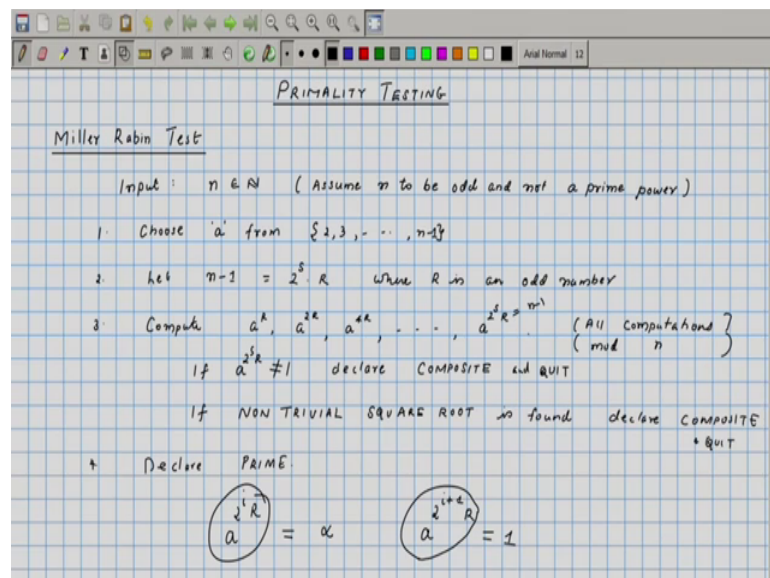 T
Arial Normal 12
PRIMALITY TESTING
Miller Rabin Test
Input : n ∈ N ( Assume n to be odd and not a prime power )
1. Choose 'a' from {2,3,- - -, n-1}
2. Let n-1 = 2^S. R where R is an odd number
3. Compute a^R, a^{2R}, a^{4R}, - - - , a^{2^S R = n-1}. (All computations)
( mod n )
If a^{2^S R} ≠ 1 declare COMPOSITE and QUIT
If NON TRIVIAL SQUARE ROOT is found declare COMPOSITE
+ QUIT
4 Declare PRIME.
a^{2^i R} = α a^{2^{i+1} R} = 1